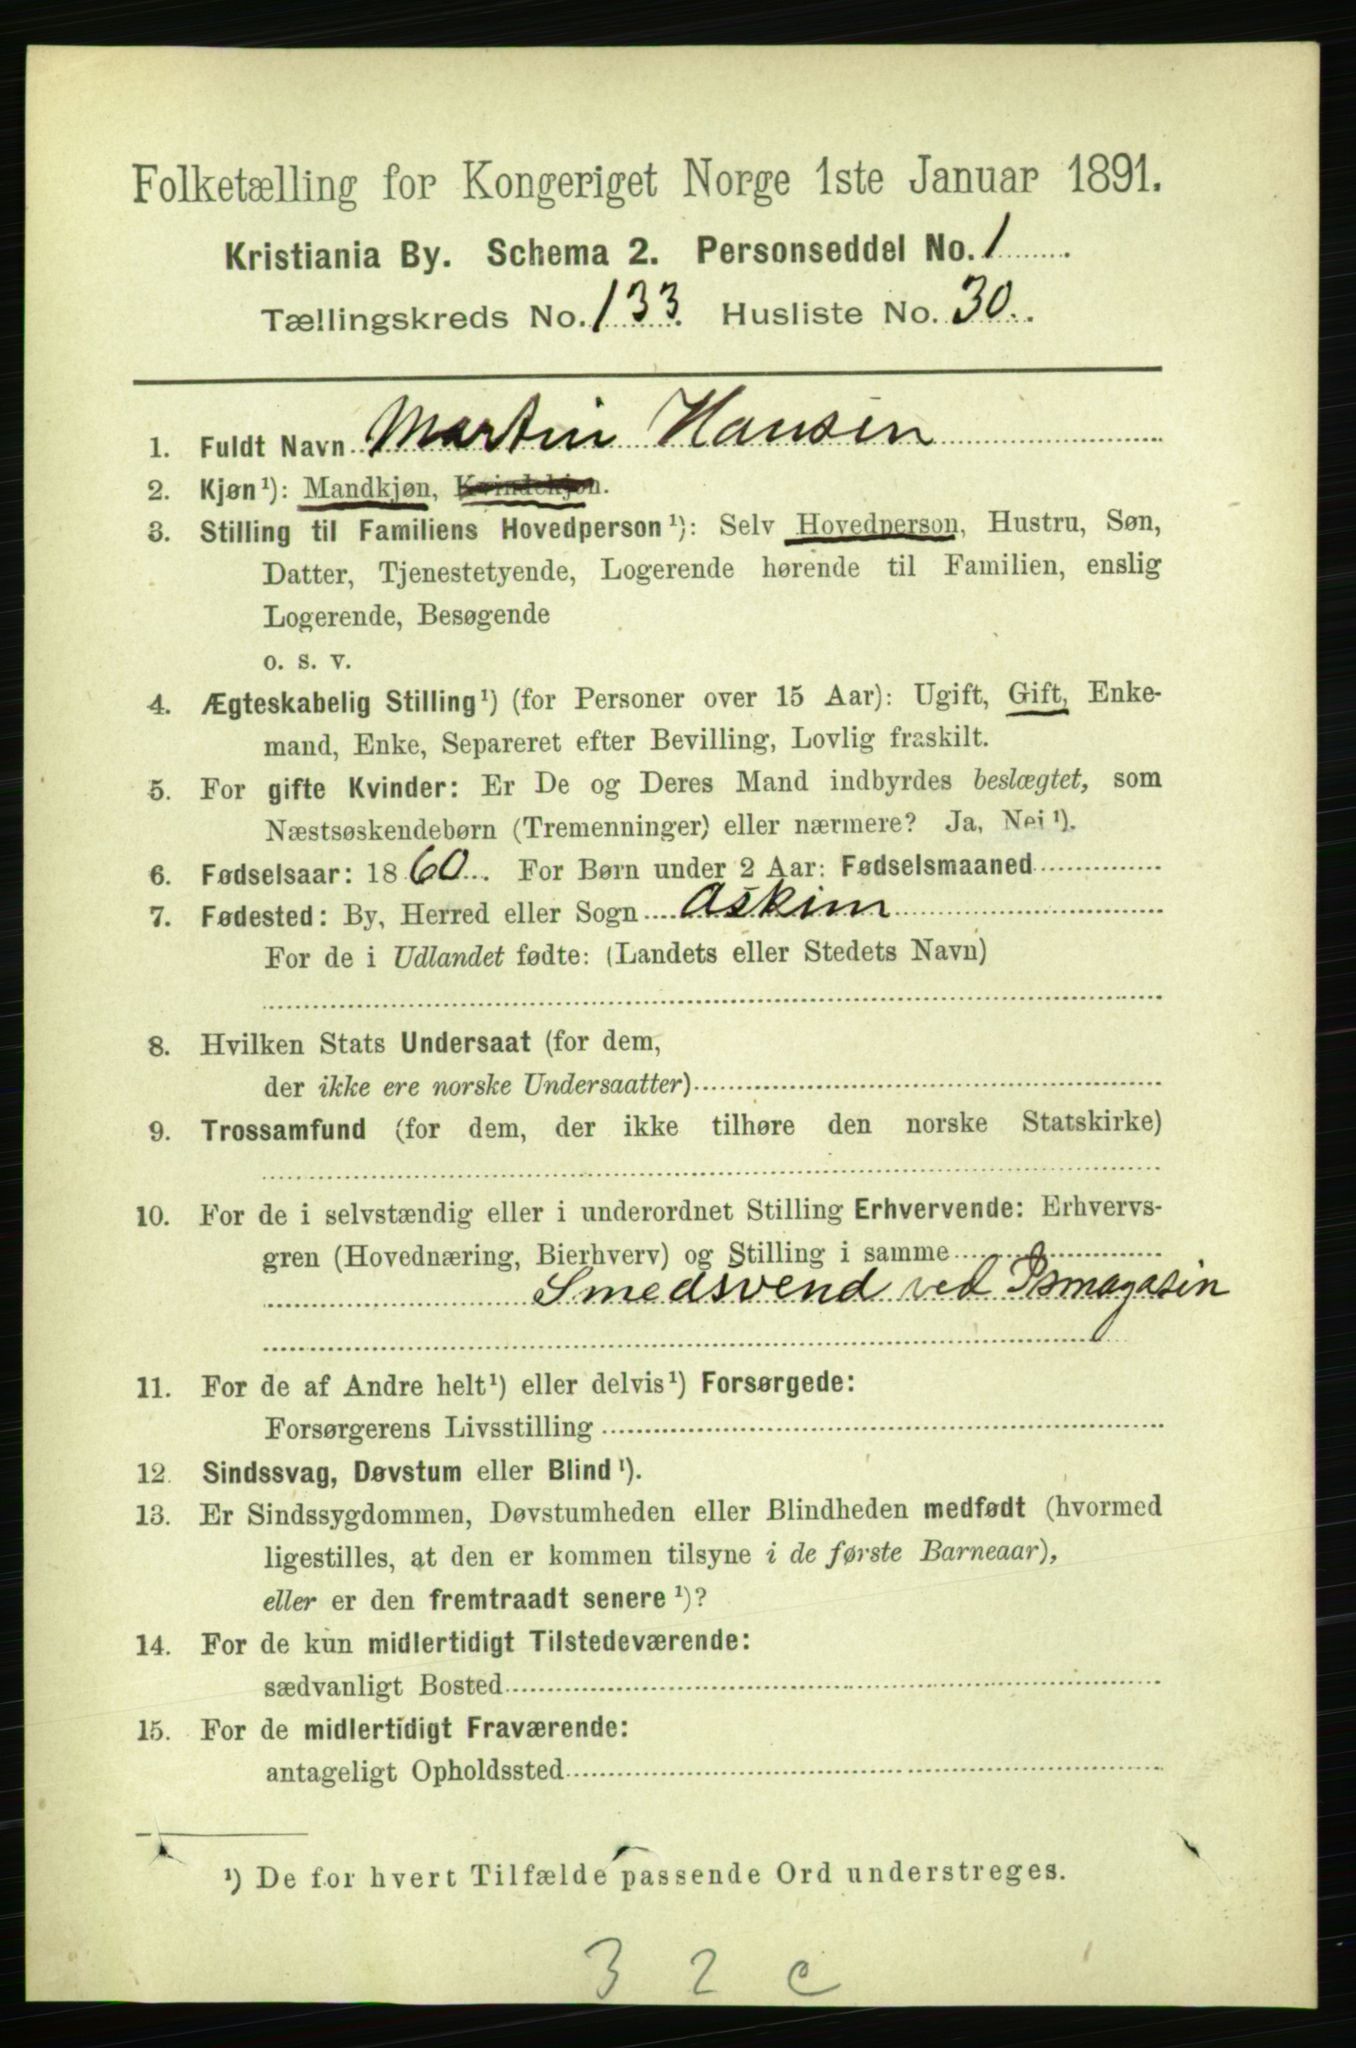 Folketælling for Kongeriget Norge 1ste Januar 1891.
Kristiania By. Schema 2. Personseddel No. 1
Tællingskreds No. 133. Husliste No. 30.
1. Fuldt Navn Martin Hansen
2. Kjøn¹): Mandkjøn, Kvindekjøn.
3. Stilling til Familiens Hovedperson¹): Selv Hovedperson, Hustru, Søn,
Datter, Tjenestetyende, Logerende hørende til Familien, enslig
Logerende, Besøgende
o. s. v.
4. Ægteskabelig Stilling¹) (for Personer over 15 Aar): Ugift, Gift, Enke-
mand, Enke, Separeret efter Bevilling, Lovlig fraskilt.
5. For gifte Kvinder: Er De og Deres Mand indbyrdes beslægtet, som
Næstsøskendebørn (Tremenninger) eller nærmere? Ja, Nei¹).
6. Fødselsaar: 1860. For Børn under 2 Aar: Fødselsmaaned
7. Fødested: By, Herred eller Sogn Askim
For de i Udlandet fødte: (Landets eller Stedets Navn)
8. Hvilken Stats Undersaat (for dem,
der ikke ere norske Undersaatter)
9. Trossamfund (for dem, der ikke tilhøre den norske Statskirke)
10. For de i selvstændig eller i underordnet Stilling Erhvervende: Erhvervs-
gren (Hovednæring, Bierhverv) og Stilling i samme
Smedsvend ved
11. For de af Andre helt¹) eller delvis¹) Forsørgede:
Forsørgerens Livsstilling
12. Sindssvag, Døvstum eller Blind¹).
13. Er Sindssygdommen, Døvstumheden eller Blindheden medfødt (hvormed
ligestilles, at den er kommen tilsyne i de første Barneaar),
eller er den fremtraadt senere¹)?
14. For de kun midlertidigt Tilstedeværende:
sædvanligt Bosted
15. For de midlertidigt Fraværende:
antageligt Opholdssted
¹) De for hvert Tilfælde passende Ord understreges.
3 2 c